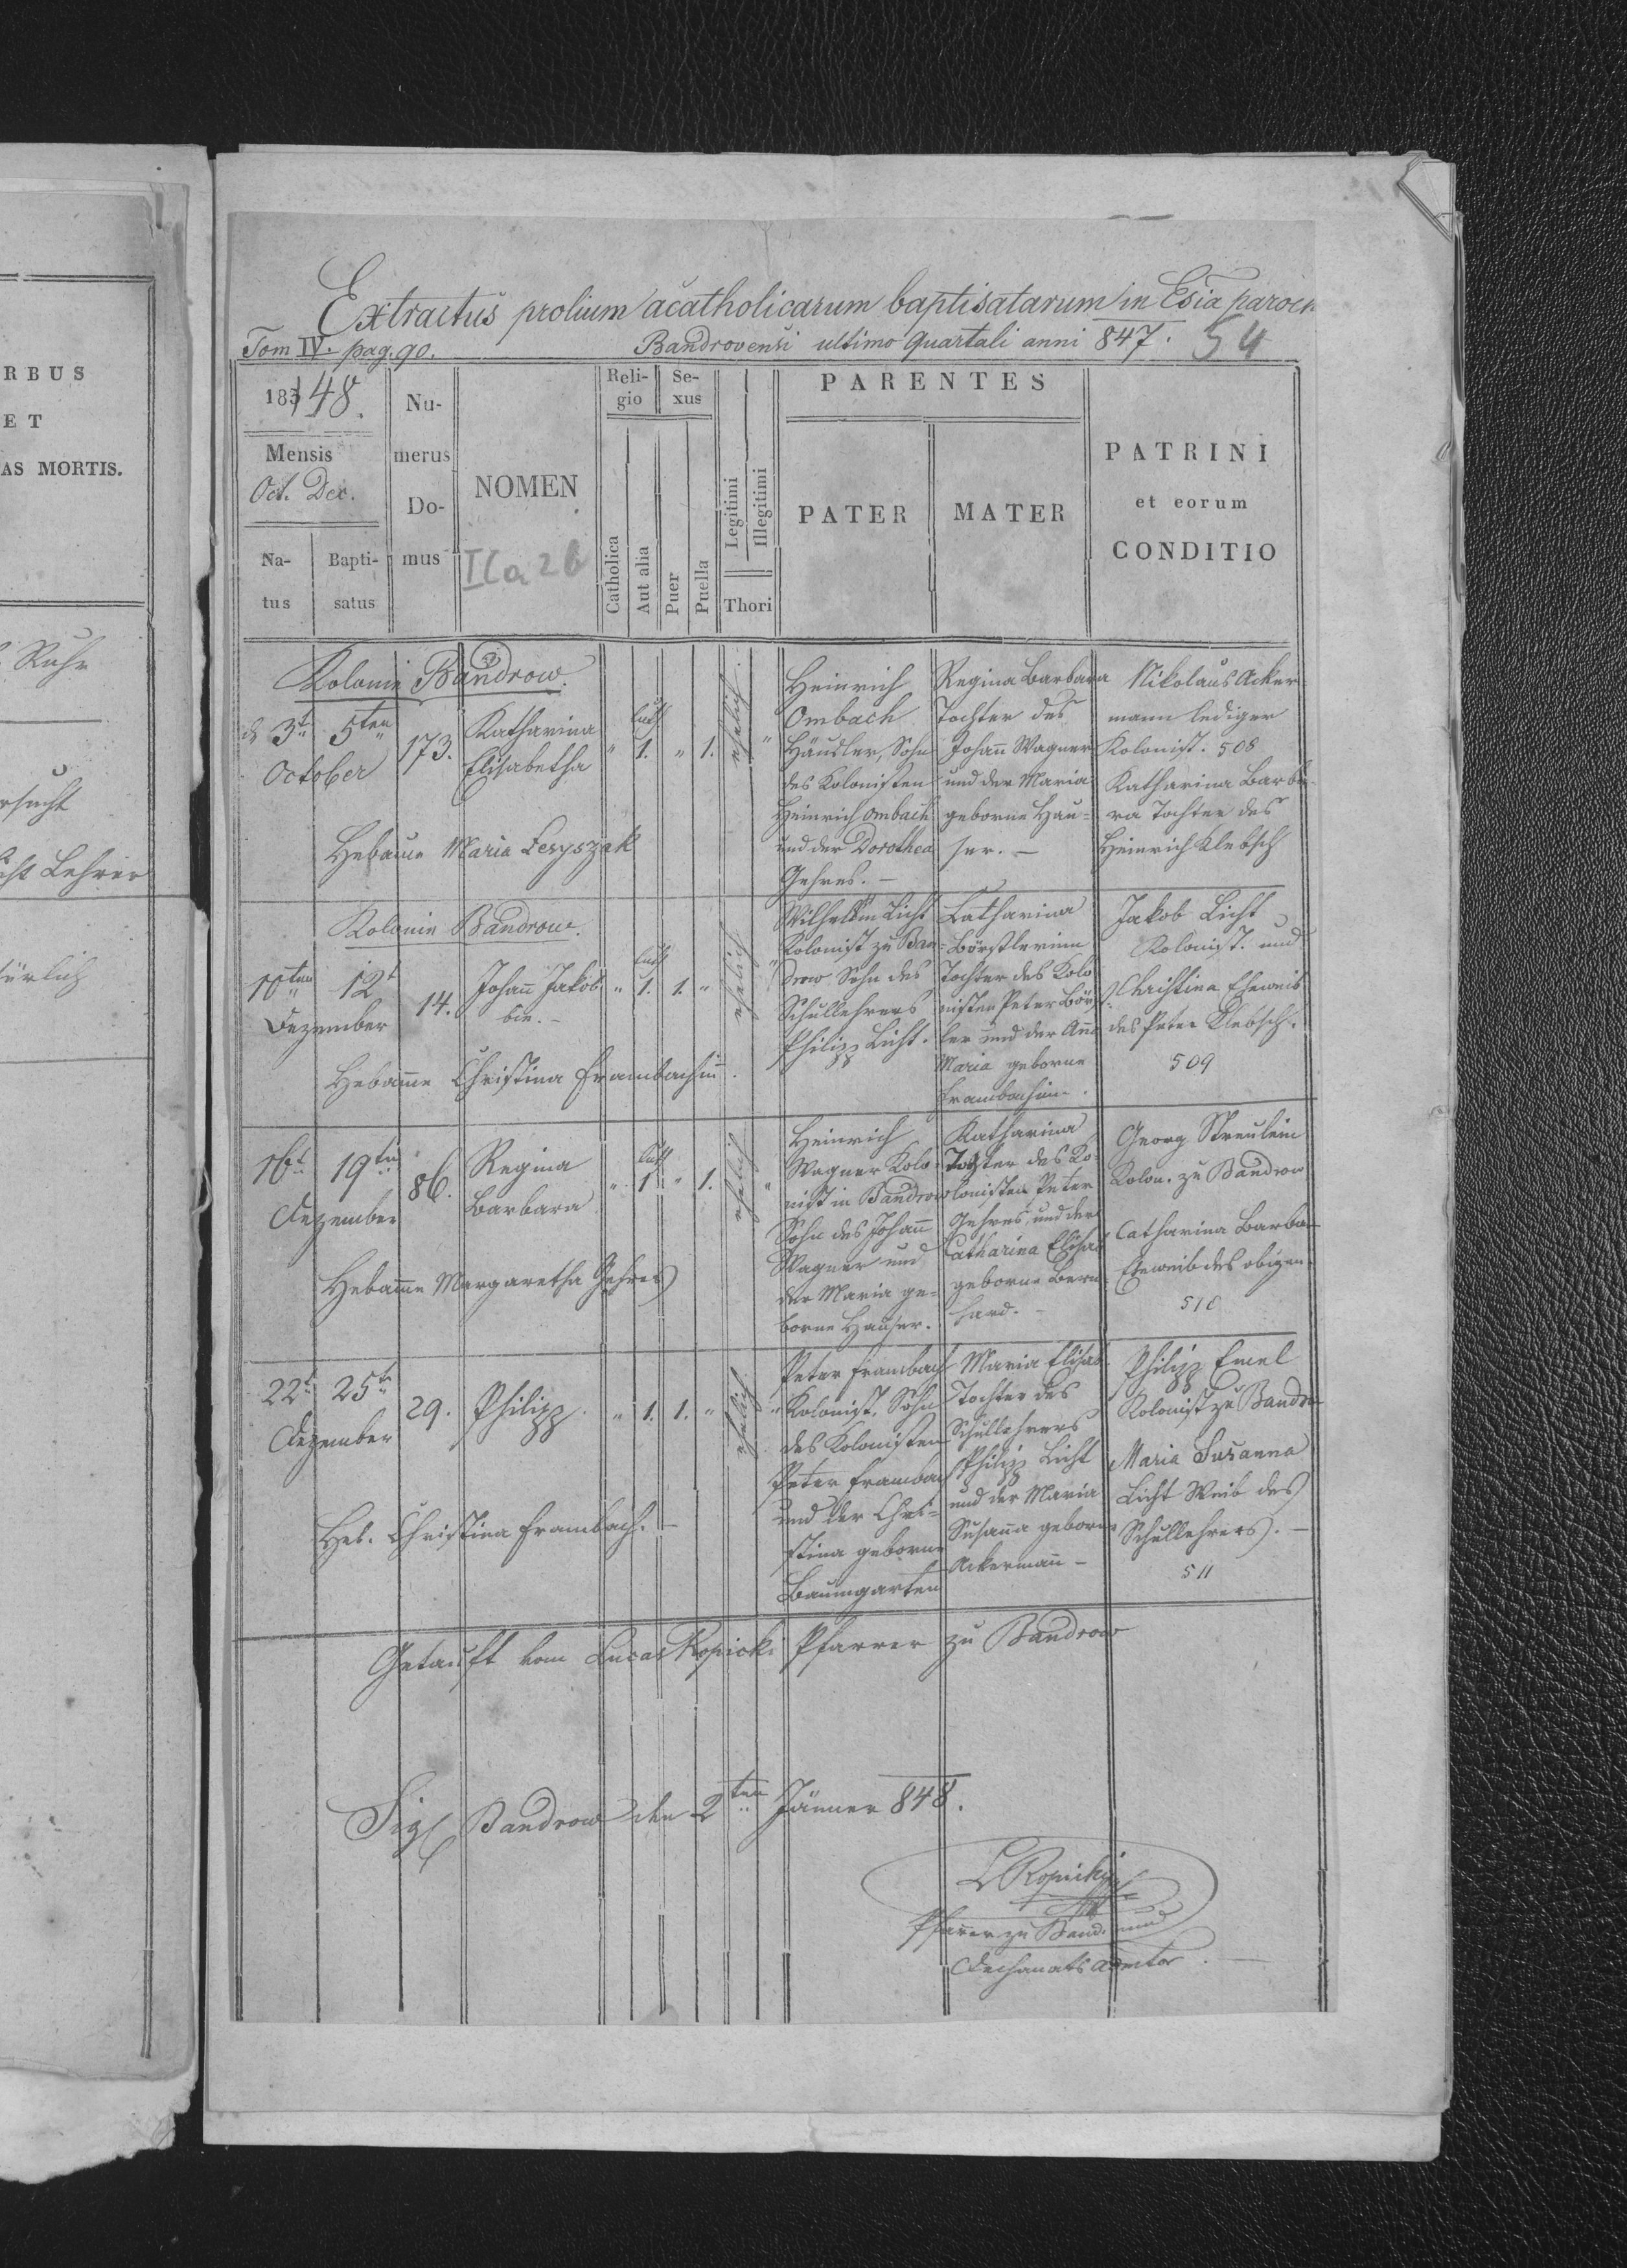 RBUS
ET
AS MORTIS.
Ruhr
Lehrer
Extractus prolium acatholicarum baptisatarum in Esia paroch
Tom IV. pag. 90. Bandrovensi ultimo Quartali anni 847. 54
183 48.
Mensis
Oct. Dec.
Na-
tus
Bapti-
satus
Nu-
merus
Do-
mus
NOMEN
II a 2 b
Reli-
gio
Catholica
Aut alia
Se-
xus
Puer
Puella
Legitimi
Illegitimi
Thori
PARENTES
PATER
MATER
PATRINI
et eorum
CONDITIO
Kolonie Bandrow.
d 3t 5ten
October
173.
Katharina
Elisabetha
" luth 1. " 1. ehelich "
Hebamme Maria Leszszak
Heinrich
Ombach
Händler, Sohn
des Kolonisten
Heinrich Ombach
und der Dorothea
Gehres. –
Regina Barbara
Tochter des
Johann Wagner
und der Maria
geborne Hau=
ser. –
Nikolaus Acker
mann lediger
Kolonist. 508
Katharina Barba
ra Tochter des
Heinrich Klebsch
Kolonie Bandrow.
10ten 12t
Dezember
14.
Johann Jakob
" luth 1. 1. " ehelich "
Hebamme Christina Frambachin.
Wilhelm Licht
Kolonist zu Ban=
drow Sohn des
Schullehrers
Philipp Licht.
Catharina
Börstlerinn
Tochter des Kolo
nisten Peter Börst
ler und der Anna
Maria geborne
Frambachin.
Jakob Licht
Kolonist. und
Christina Eheweib
des Peter Klebsch.
509
16t 19ten
Dezember
86.
Regina
Barbara
" luth 1 " 1. ehelich "
Hebamme Margaretha Gehres
Heinrich
Wagner Kolo=
nist in Bandrow
Sohn des Johann
Wagner und
der Maria ge=
borne Hauser.
Katharina
Tochter des Ko
lonisten Peter
Gehres, und der
Catharina Elisab
geborne Bern
hard. –
Georg Streulein
Kolon. zu Bandrow
Catharina Barba
Eheweib des obigen
510
22t 25t
Dezember
29.
Philipp.
" 1. 1. " ehelich "
Heb. Christina Frambach. –
Peter Frambach
Kolonist, Sohn
des Kolonisten
Peter Frambach
und der Chri=
stina geborne
Baumgarten
Maria Elisab
Tochter des
Schullehrers
Philipp Licht
und der Maria
Susanna geborne
Ackermann –
Philipp Emel
Kolonist zu Bandro
Maria Susanna
Licht Weib des
Schullehrers. –
511
Getauft vom Lucas Ropicki Pfarrer zu Bandrow
Sigl Bandrow den 2ten Jänner 848.
L Ropicki
Pfarrer zu Band. und
Dechanats Admtor.